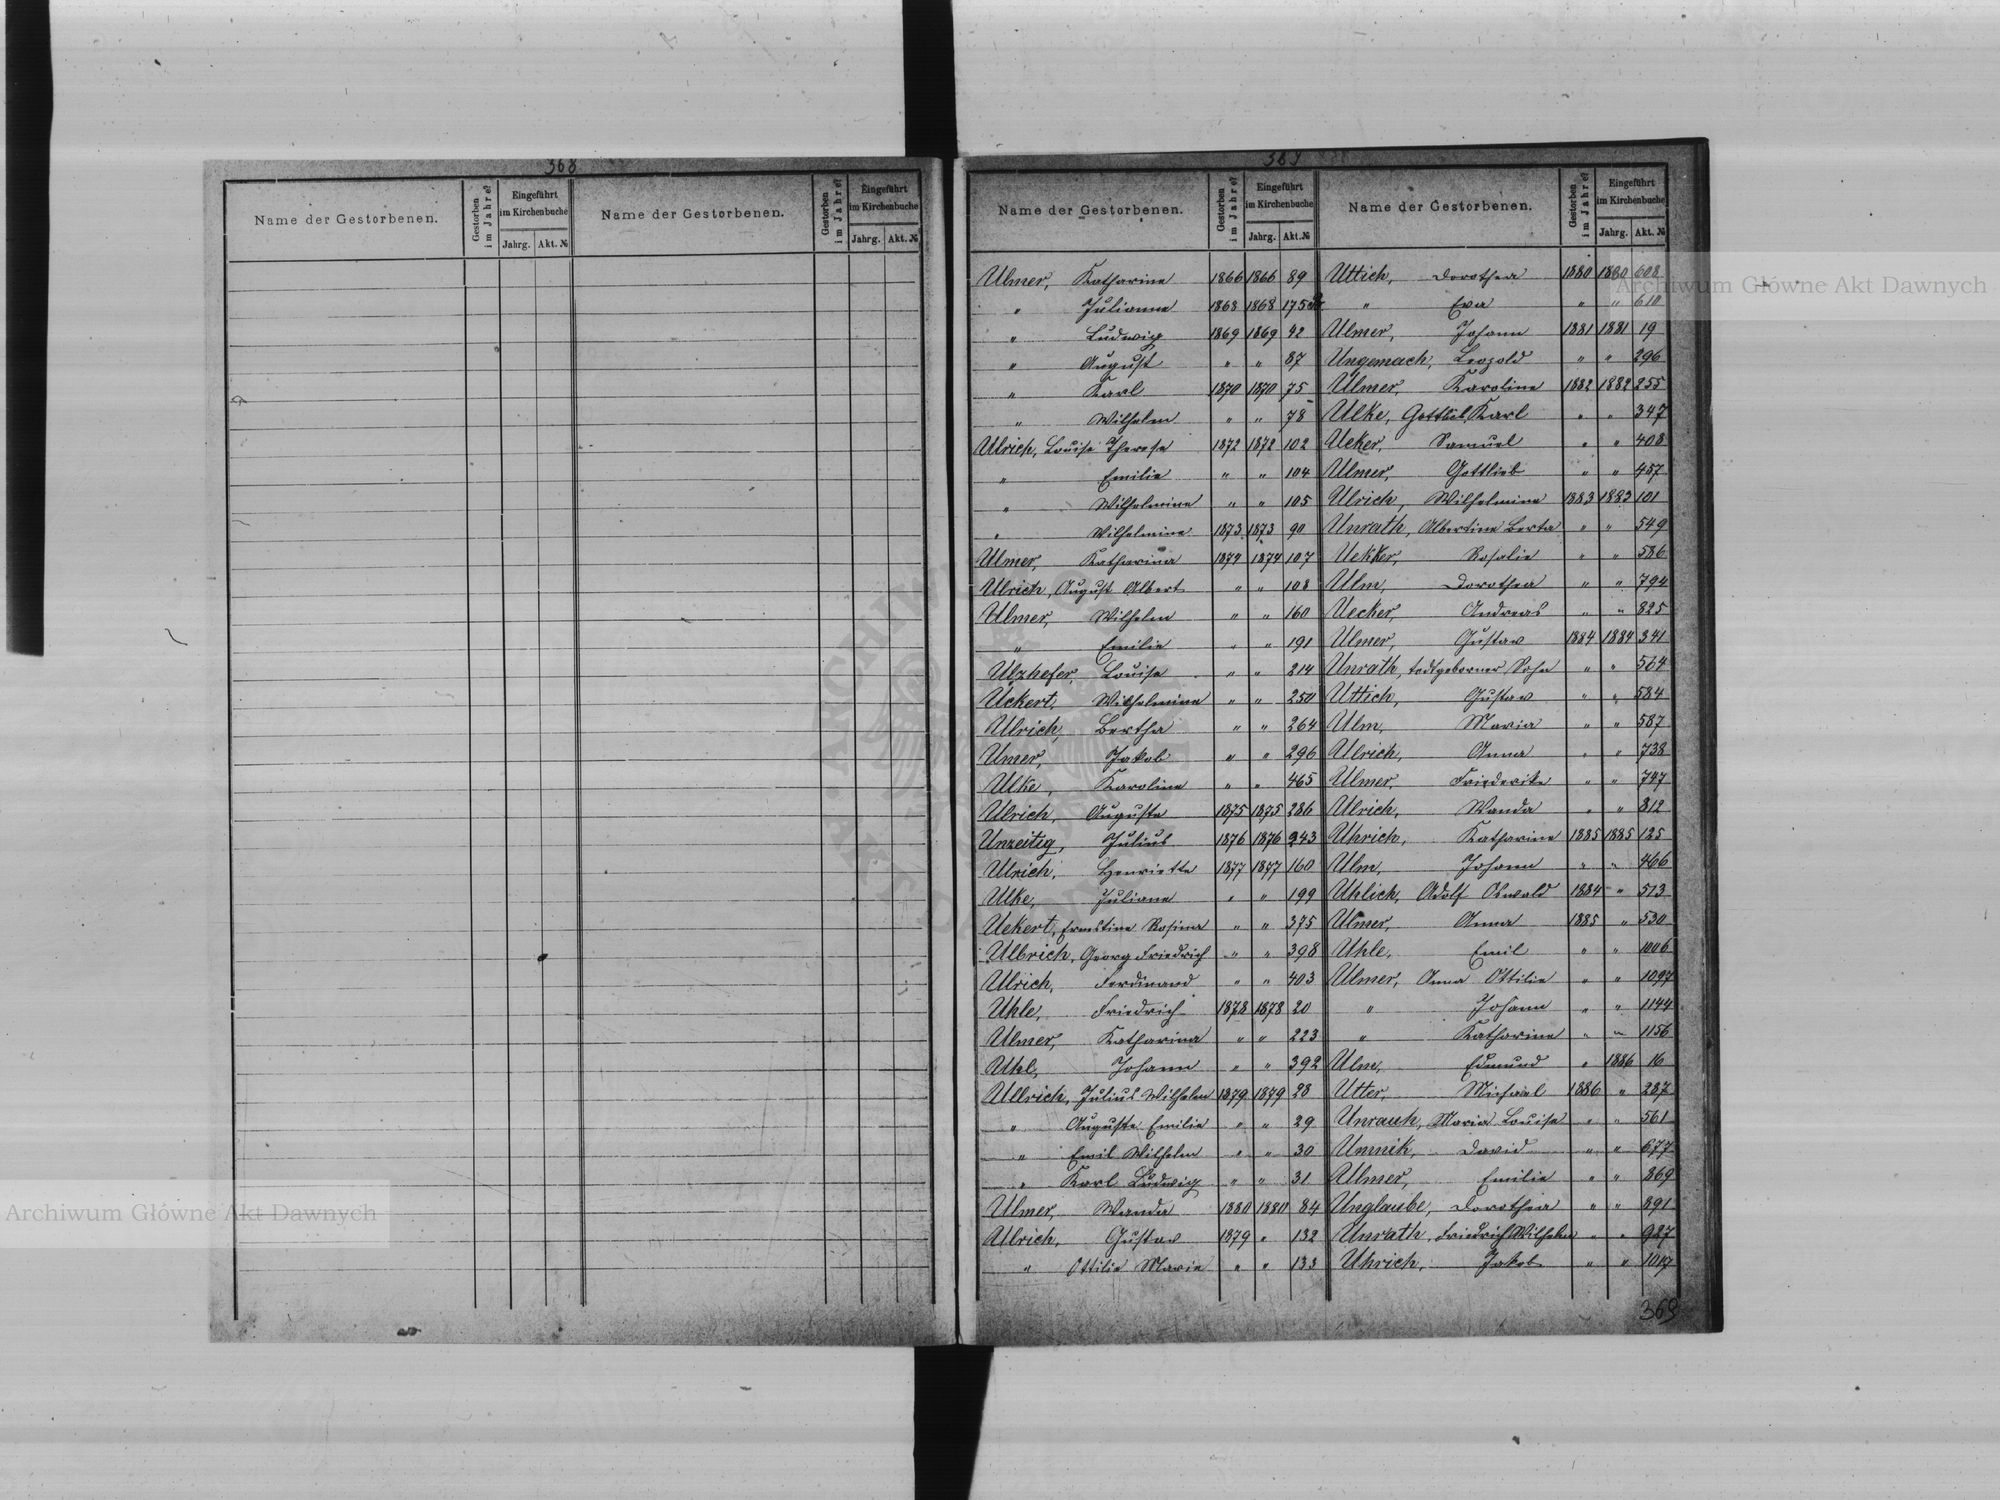 368
Name der Gestorbenen. Gestorben im Jahre? Eingeführt im Kirchenbuche Jahrg. Akt. № Name der Gestorbenen. Gestorben im Jahre? Eingeführt im Kirchenbuche Jahrg. Akt. №
369
Name der Gestorbenen. Gestorben im Jahre? Eingeführt im Kirchenbuche Jahrg. Akt. № Name der Gestorbenen. Gestorben im Jahre? Eingeführt im Kirchenbuche Jahrg. Akt. №
Ulmer, Katharine 1866 1866 89
" Julianna 1868 1868 175
" Ludwig 1869 1869 42
" August " " 87
" Karl 1870 1870 75
" Wilhelm " " 78
Ulrich, Louise Therese 1872 1872 102
" Emilie " " 104
" Wilhelmine " " 105
" Wilhelmine 1873 1873 90
Ulmer, Katharina 1874 1874 107
Ulrich, August Albert " " 108
Ulmer, Wilhelm " " 160
" Emilie " " 191
Ulzhefer, Louise " " 214
Uckert, Wilhelmine " " 250
Ulrich, Bertha " " 264
Umer, Jakob " " 296
Ulke, Karoline " " 465
Ulrich, Auguste 1875 1875 286
Unzeitig, Julius 1876 1876 243
Ulrich, Henriette 1877 1877 160
Ulke, Juliane " " 199
Uekert, Ernestine Rosina " " 375
Ulbrich, Georg Friedrich " " 398
Ulrich, Ferdinand " " 403
Uhle, Friedrich 1878 1878 20
Ulmer, Katharina " " 223
Uhl, Johann " " 392
Ullrich, Julius Wilhelm 1879 1879 28
" Auguste Emilie " " 29
" Emil Wilhelm " " 30
" Karl Ludwig " " 31
Ulmer, Wanda 1880 1880 84
Ullrich, Gustav 1879 " 132
" Ottilie Marie " " 133
Uttich, Dorothea 1880 1880 608
" Eva " " 610
Ulmer, Johann 1881 1881 19
Ungemach, Leopold " " 296
Ulmer, Karoline 1882 1882 255
Ulke, Gottlieb Karl " " 347
Ueker, Samuel " " 408
Ulmer, Gottlieb " " 457
Ulrich, Wilhelmine 1883 1883 101
Unrath, Albertine Berta " " 549
Uekker, Rosalie " " 586
Ulm, Dorothea " " 794
Uecker, Andreas " " 825
Ulmer, Gustav 1884 1884 341
Unrath, todtgeborner Sohn " " 564
Uttich, Gustav " " 584
Ulm, Maria " " 587
Ulrich, Anna " " 738
Ulmer, Friederike " " 747
Ulrich, Wanda " " 812
Uhrich, Katharine 1885 1885 125
Ulm, Johann " " 466
Uhlich, Adolf Oswald 1884 " 513
Ulmer, Anna 1885 " 530
Uhle, Emil " " 1006
Ulmer, Anna Ottilie " " 1097
" Johann " " 1144
" Katharine " " 1156
Ulm, Edmund " 1886 16
Utter, Michael 1886 " 287
Unrauh, Maria Louise " " 561
Umnik, David " " 677
Ulmer, Emilie " " 869
Unglaube, Dorothea " " 891
Unrath, Friedrich Wilhelm " " 927
Uhrich, Jakob " " 1017
369
Archiwum Główne Akt Dawnych
Archiwum Główne Akt Dawnych